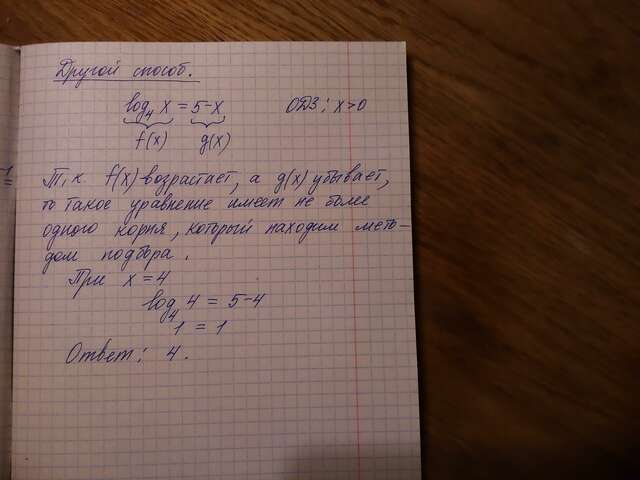 Другой способ.
log₄ x = 5-x ОДЗ: x>0
f(x) g(x)
Т.к. f(x) возрастает, а g(x) убывает,
то такое уравнение имеет не более
одного корня, который находим мето-
дом подбора.
При x=4
log₄ 4 = 5-4
1 = 1
Ответ: 4.